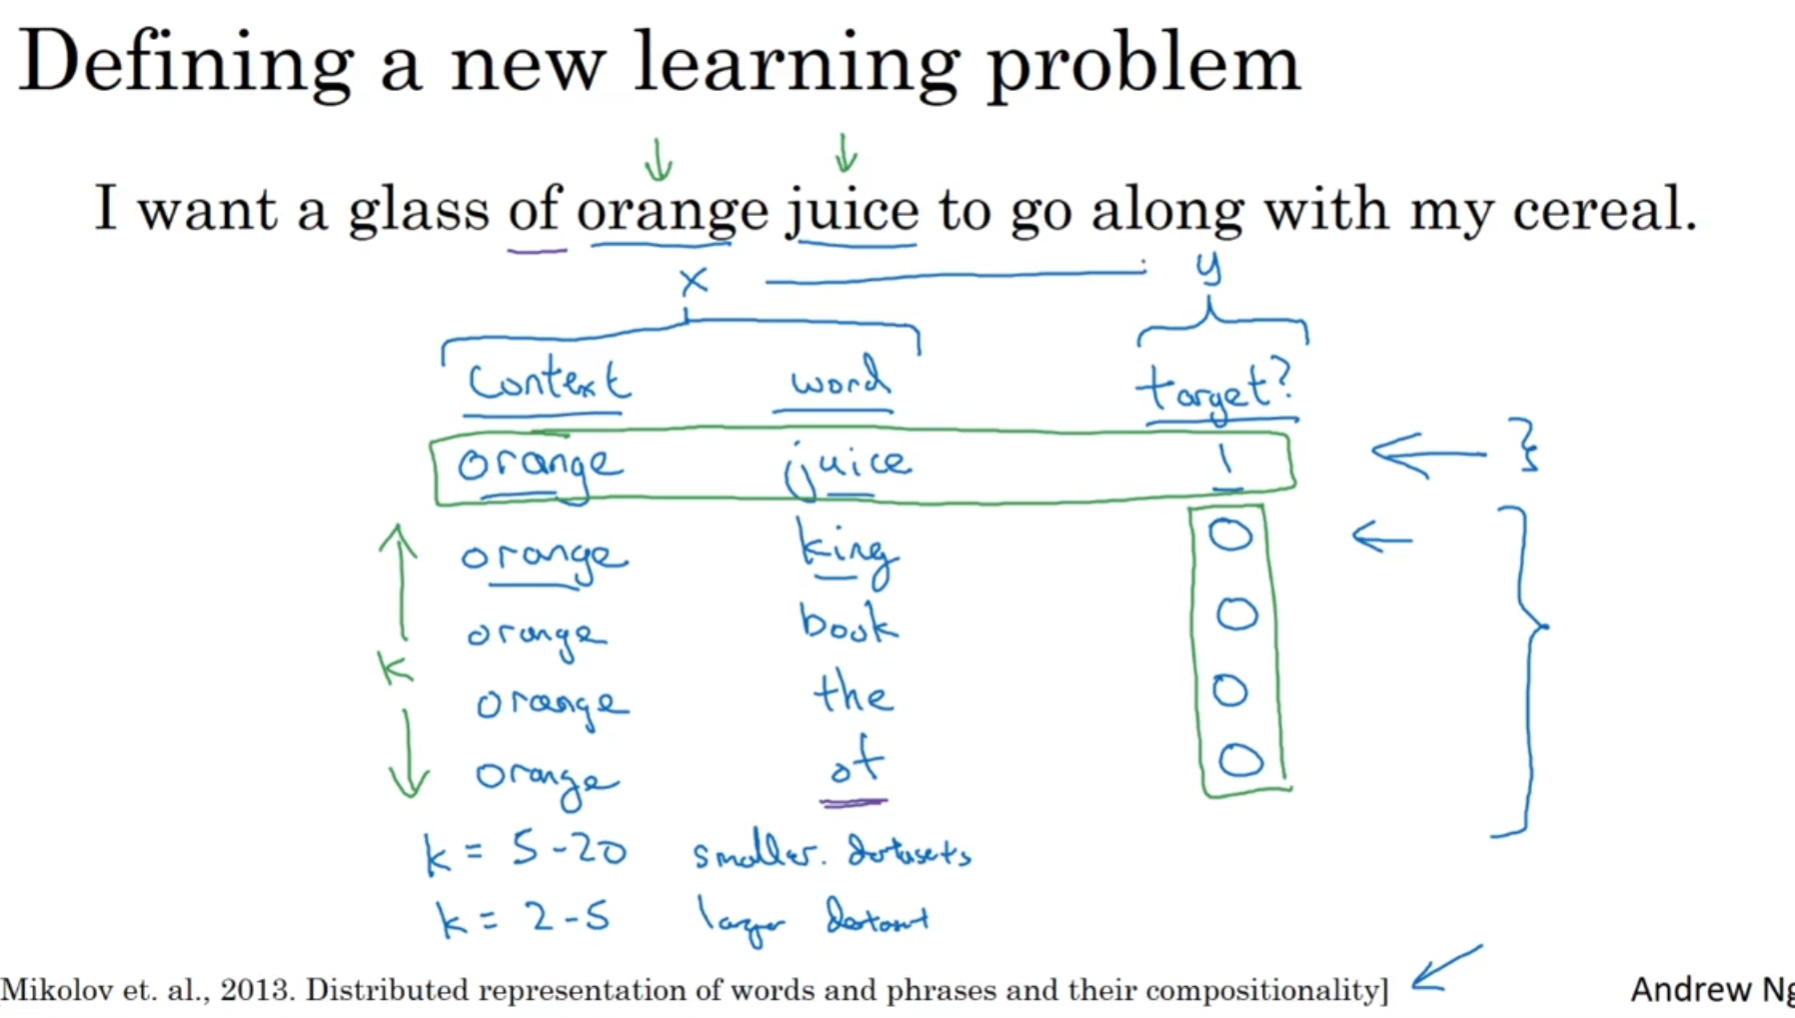 Defining a new learning problem
I want a glass of orange juice to go along with my cereal.
x y
Context word target?
orange juice 1
orange king 0
orange book 0
k
orange the 0
orange of 0
k = 5-20 smaller. datasets
k = 2-5 larger dataset
Mikolov et. al., 2013. Distributed representation of words and phrases and their compositionality]
Andrew Ng